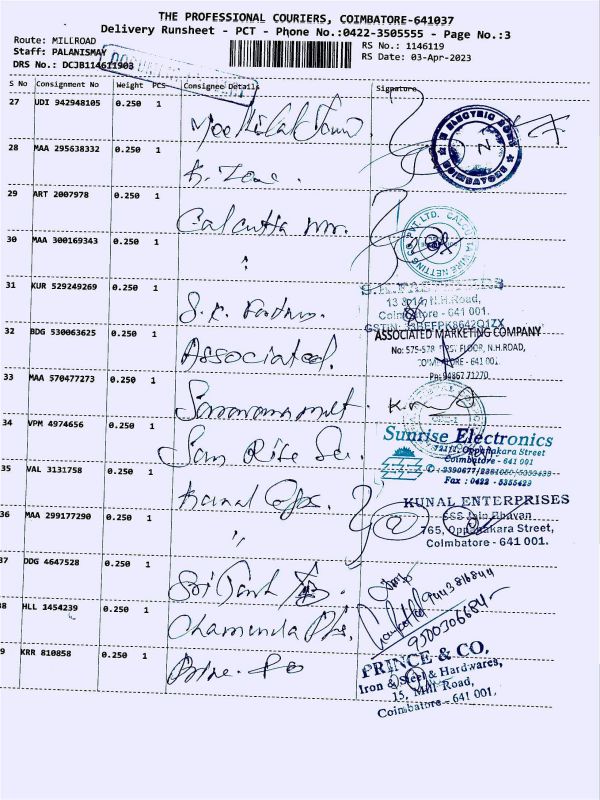 THE PROFESSIONAL COURIERS, COIMBATORE-641037
Delivery Runsheet - PCT - Phone No.:0422-3505555 - Page No.:3
Route: MILLROAD
RS No.: 1146119
Staff: PALANISMAY
RS Date: 03-Apr-2023
DRS No.: DCJB114611903
S No Consignment No Weight PCS Consignee Details Signature
27 UDI 942948105 0.250 1
ELECTRIC
COIMBATORE
28 MAA 295638332 0.250 1 K. Zone.
29 ART 2007978 0.250 1 Calcutta
PVT. LTD. CALCUTTA WIRE NETTING
30 MAA 300169343 0.250 1 "
31 KUR 529249269 0.250 1 S.K.
S.K.
N.H.Road,
Coimbatore - 641 001.
GSTIN: 33BEFPK8642Q1ZX
32 BDG 530063625 0.250 1 Associated.
ASSOCIATED MARKETING COMPANY
No: 575-578, FIRST FLOOR, N.H.ROAD,
COIMBATORE - 641 001.
Ph: 94867 71270
33 MAA 570477273 0.250 1
34 VPM 4974656 0.250 1 Sun Rise
Sunrise Electronics
Oppanakara Street
Coimbatore - 641 001
Fax : 0422 - 5355433
35 VAL 3131758 0.250 1 Kunal
KUNAL ENTERPRISES
Jain Bhavan
765, Oppanakara Street,
Coimbatore - 641 001.
36 MAA 299177290 0.250 1 "
37 DDG 4647528 0.250 1 Sri
9443816844
38 HLL 1454239 0.250 1 Chamunda
9500306684
39 KRR 810858 0.250 1
PRINCE & CO.
Iron & Steel & Hardwares,
15, Mill Road,
Coimbatore - 641 001.